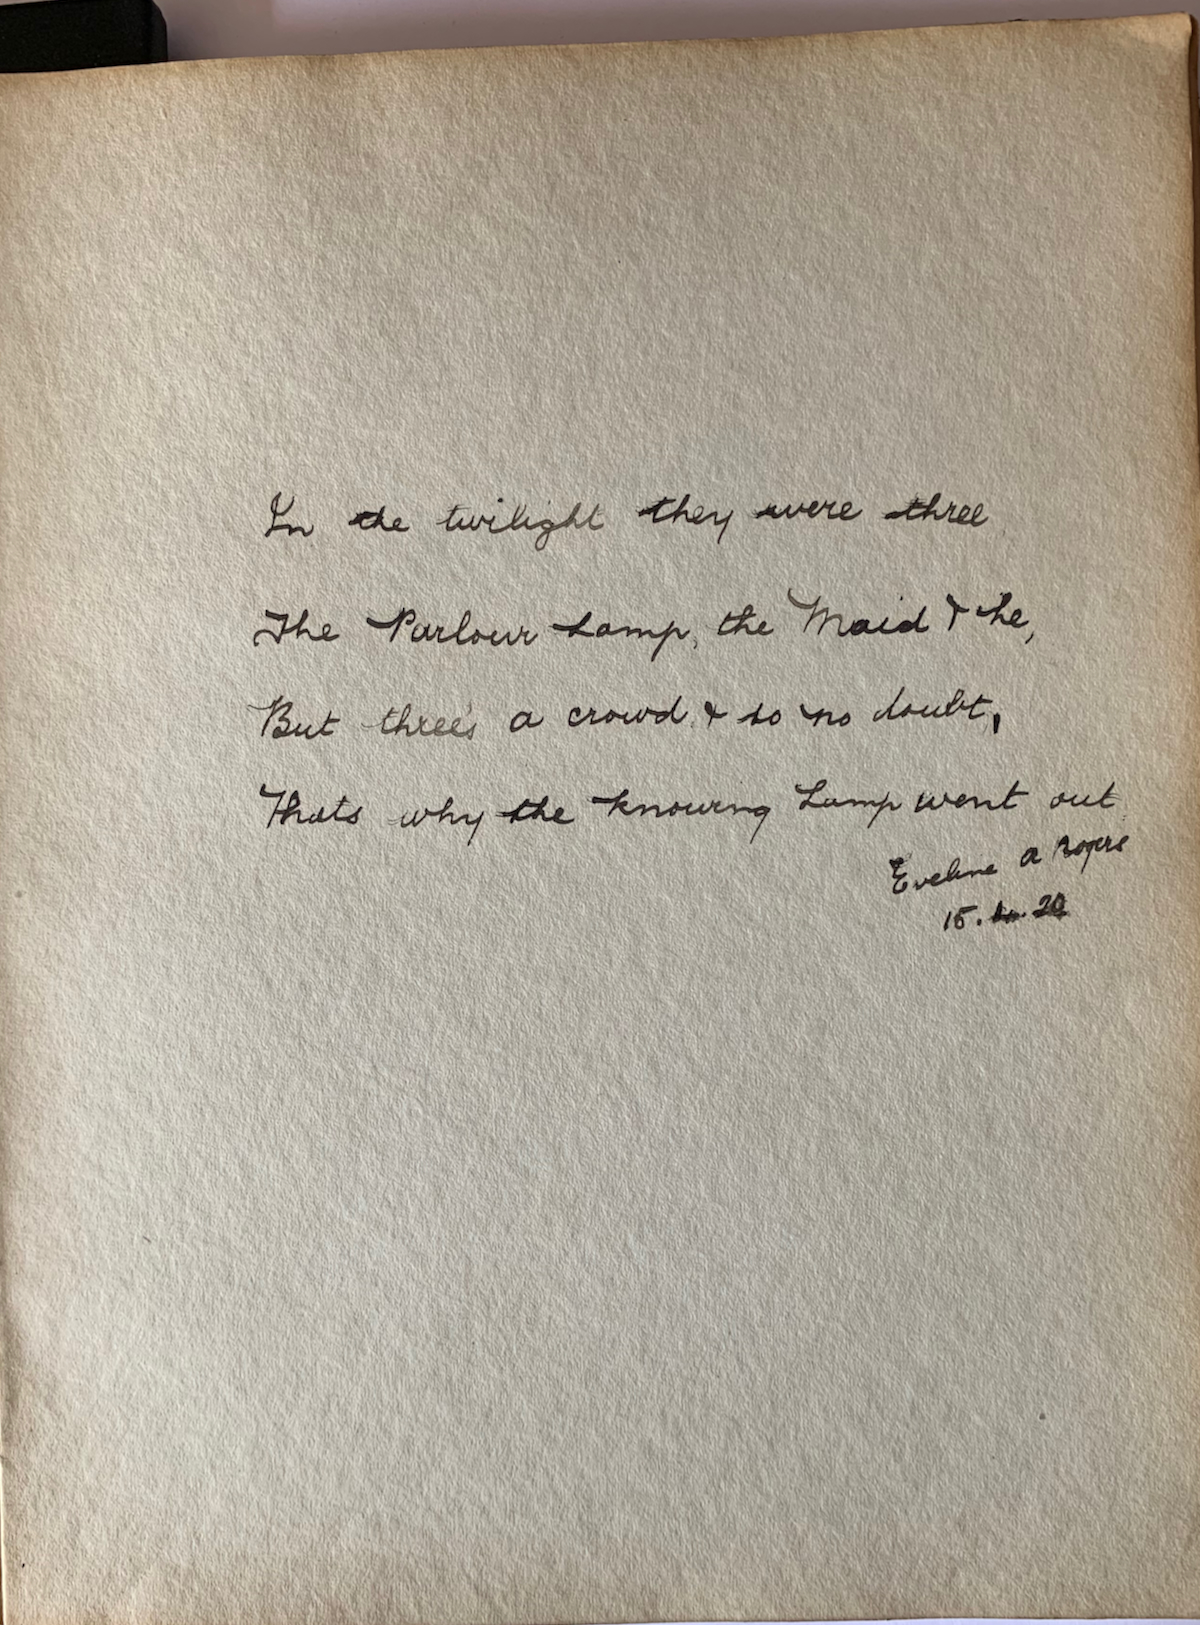 In the twilight they were three
The Parlour Lamp, the Maid & he,
But three's a crowd & so no doubt,
Thats why the knowing Lamp went out
Eveline A Rogers
15. 20